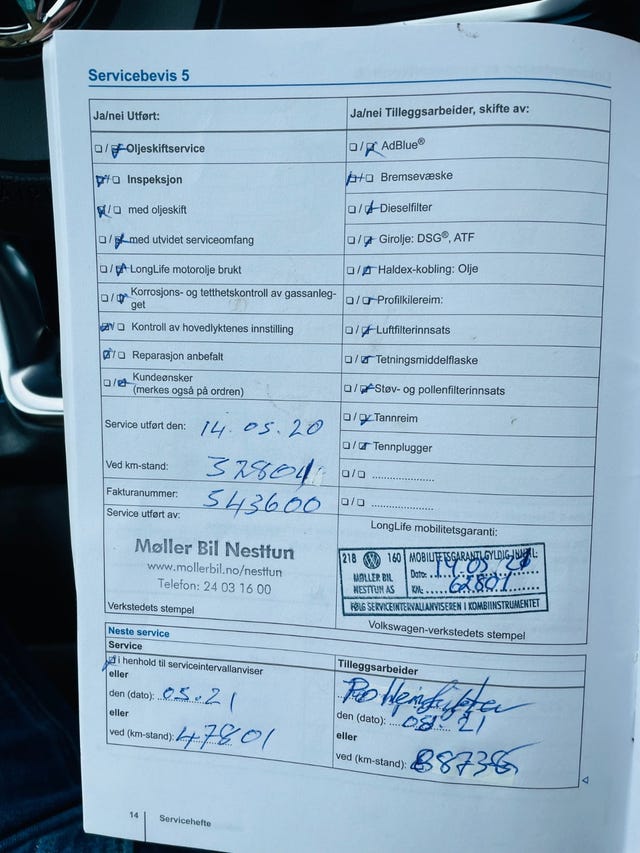 Servicebevis 5
Ja/nei Utført:
Oljeskiftservice
Inspeksjon
med oljeskift
med utvidet serviceomfang
LongLife motorolje brukt
Korrosjons- og tetthetskontroll av gassanleg-
get
Kontroll av hovedlyktenes innstilling
Reparasjon anbefalt
Kundeønsker
(merkes også på ordren)
Service utført den: 14.05.20
Ved km-stand: 32801
Fakturanummer: 543600
Service utført av:
Møller Bil Nesttun
www.mollerbil.no/nesttun
Telefon: 24 03 16 00
Verkstedets stempel
Ja/nei Tilleggsarbeider, skifte av:
AdBlue®
Bremsevæske
Dieselfilter
Girolje: DSG®, ATF
Haldex-kobling: Olje
Profilkilereim:
Luftfilterinnsats
Tetningsmiddelflaske
Støv- og pollenfilterinnsats
Tannreim
Tennplugger
LongLife mobilitetsgaranti:
218 160
MØLLER BIL
NESTTUN AS
MOBILITETSGARANTI GYLDIG INNTIL:
Dato: 14.05
KM: 62801
FØLG SERVICEINTERVALLANVISEREN I KOMBIINSTRUMENTET
Volkswagen-verkstedets stempel
Neste service
Service
i henhold til serviceintervallanviser
eller
den (dato): 05.21
eller
ved (km-stand): 47801
Tilleggsarbeider
Pollenfilter
den (dato): 21
eller
ved (km-stand): 88736
14 Servicehefte